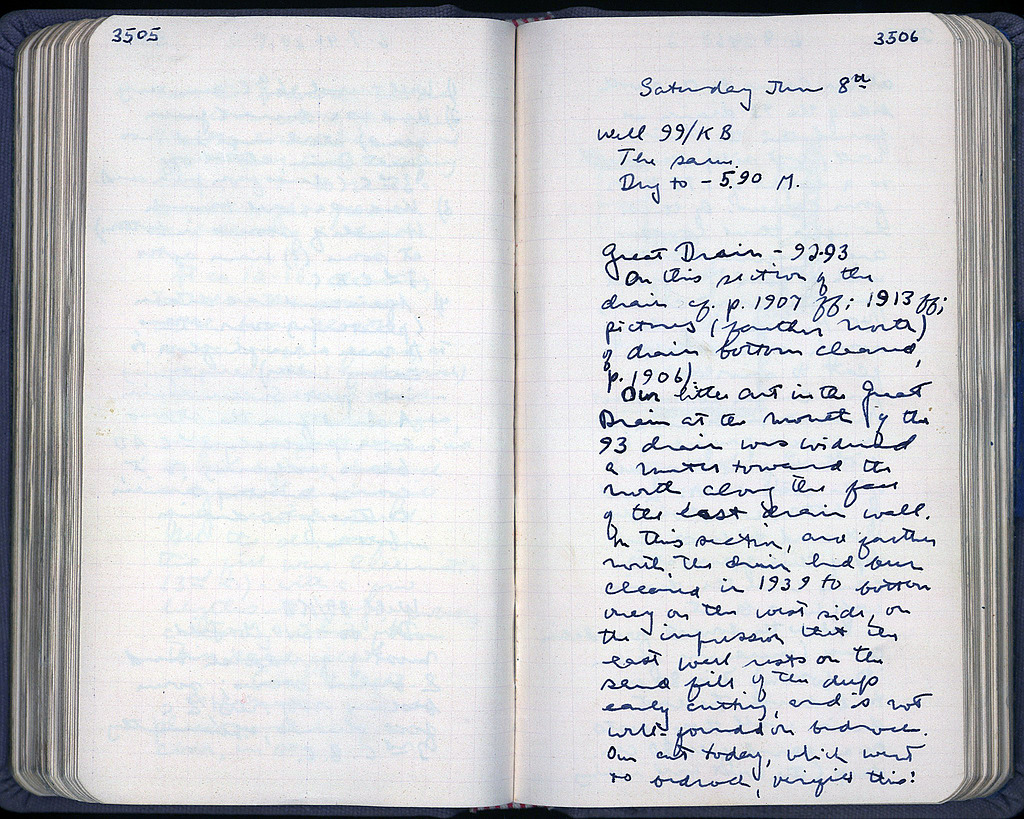 3505
3506
Saturday June 8th
Well 99/KB
The same.
Dug to -5.90 M.
Great Drain - 92-93
On this section of the
drain cf. p. 1907 ff; 1913 ff;
pictures (farther north)
of drain bottom cleared,
p. 1906).
Our little cut in the Great
Drain at the mouth of the
93 drain was widened
a meter toward the
north along the face
of the east drain wall.
In this section, and farther
north, the drain had been
cleared in 1939 to bottom
only on the west side, on
the impression that the
east wall rests on the
sand fill of the deep
early cutting, and is not
well-founded on bedrock.
Our cut today, which went
to bedrock, verifies this: